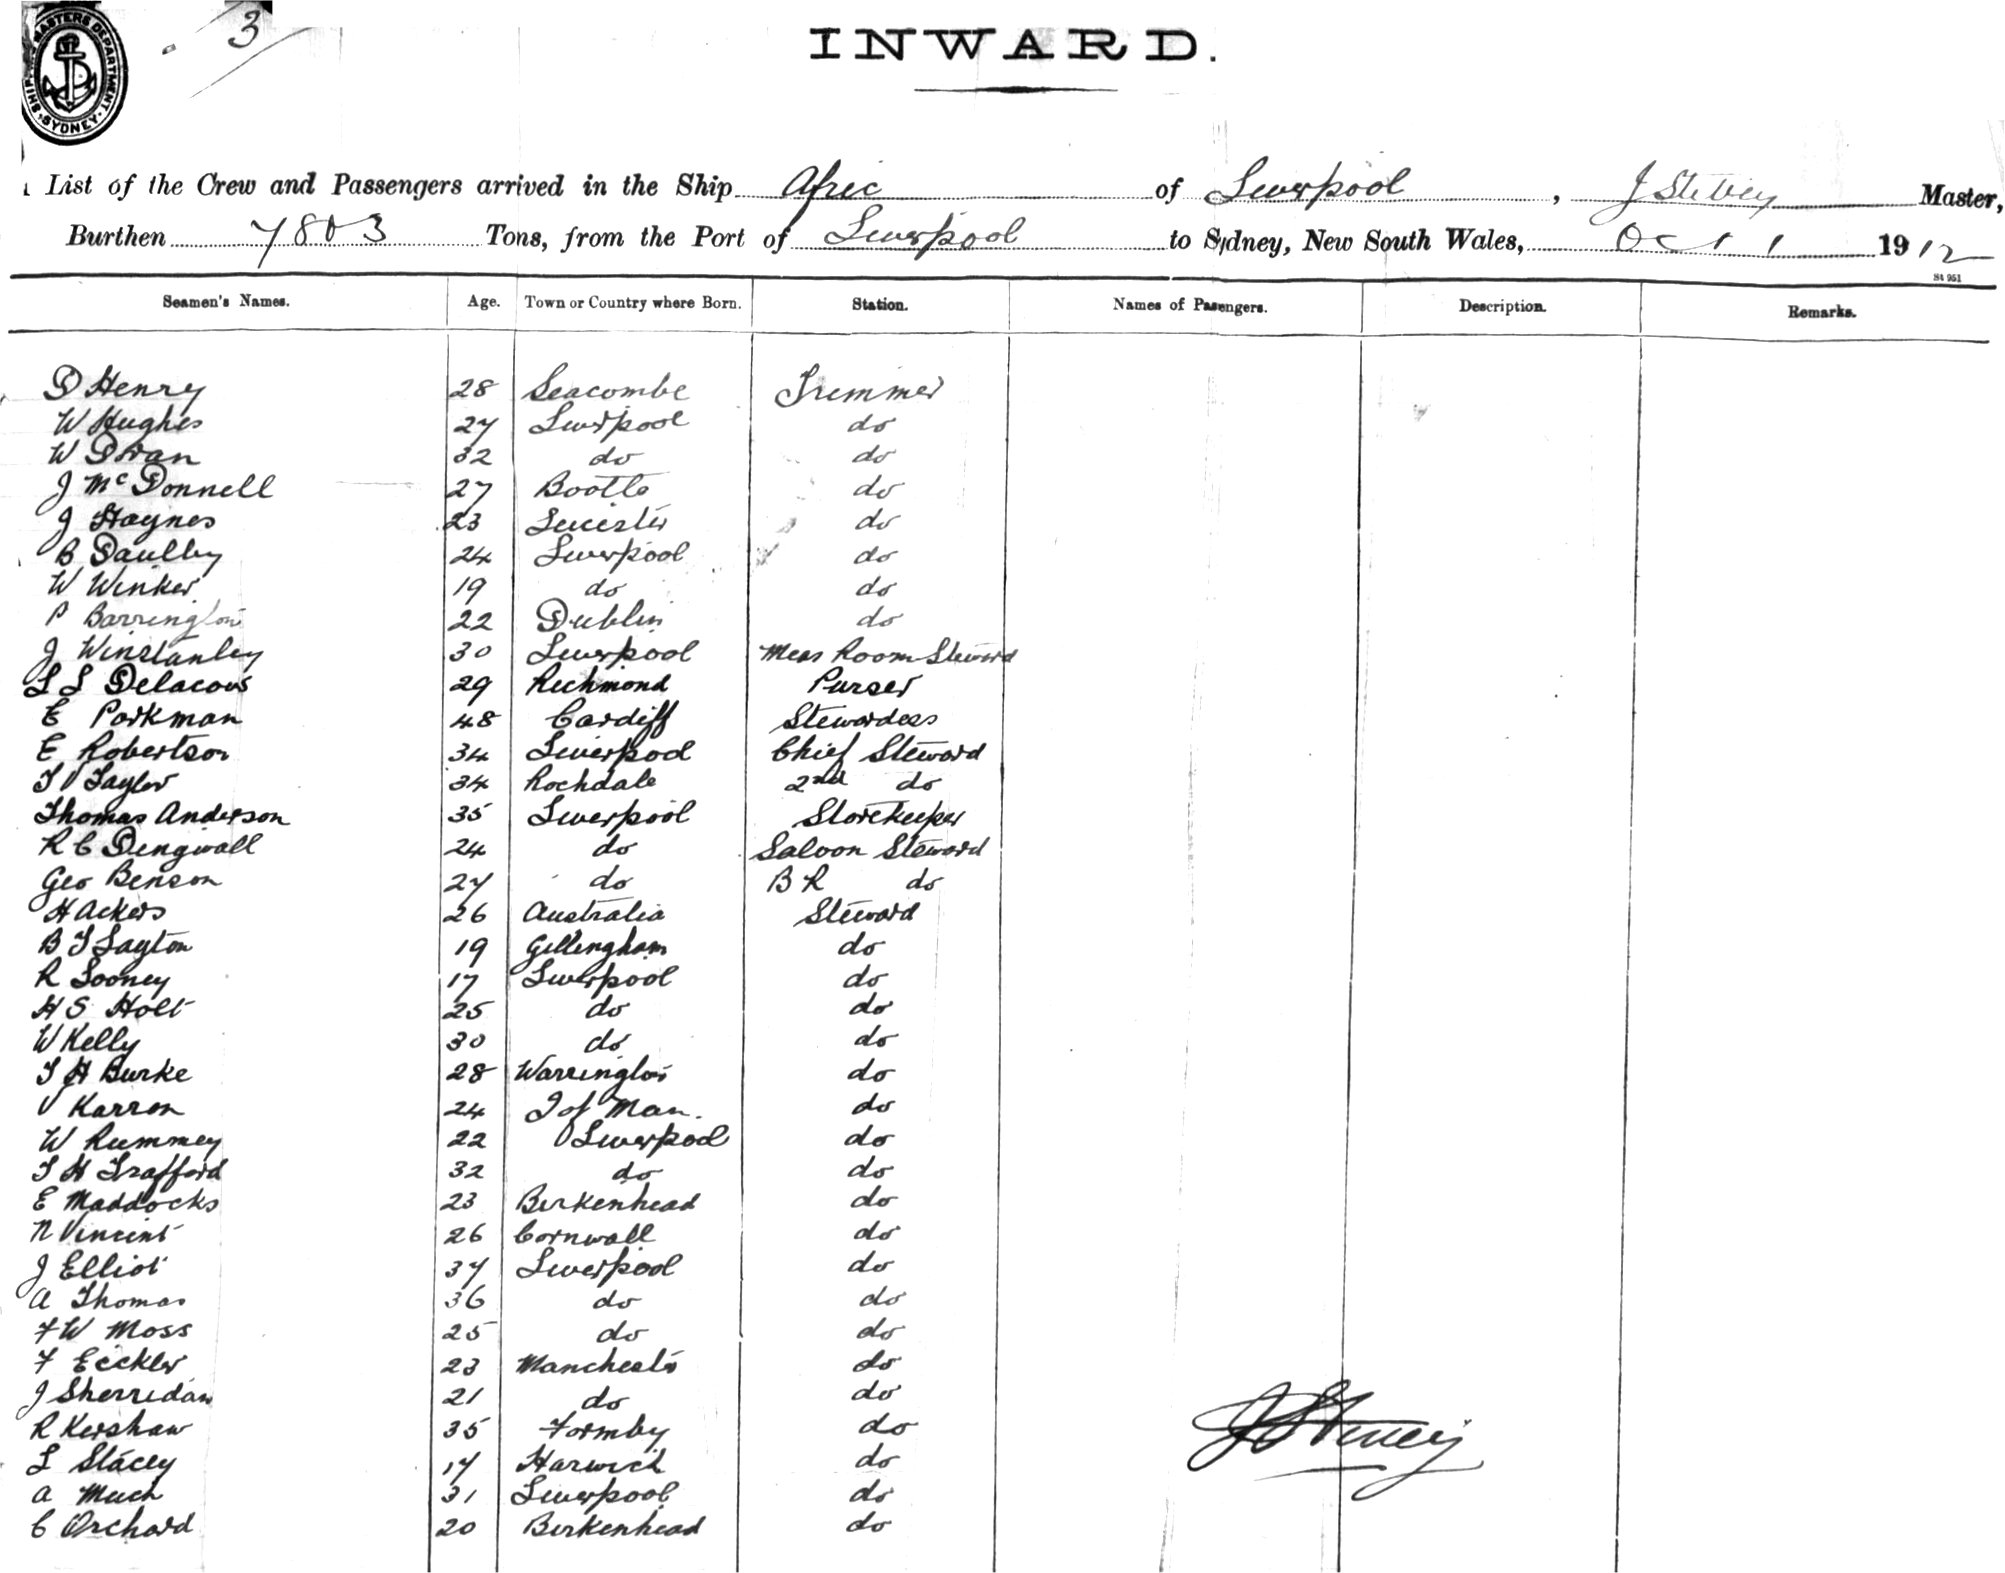 3
MASTERS DEPARTMENT
SYDNEY
INWARD.
List of the Crew and Passengers arrived in the Ship Afric of Liverpool, J Master,
Burthen 7803 Tons, from the Port of Liverpool to Sydney, New South Wales, Oct 1 1912
St 951
Seamen's Names. Age. Town or Country where Born. Station. Names of Passengers. Description. Remarks.
D Henry 28 Seacombe Trimmer
W Hughes 27 Liverpool do
W Doran 32 do do
J McDonnell 27 Bootle do
J Haynes 23 Leicester do
B Daulby 24 Liverpool do
W Winker 19 do do
P Barrington 22 Dublin do
J Winstanley 30 Liverpool Mess Room Steward
L L Delacour 29 Richmond Purser
E Porkman 48 Cardiff Stewardess
E Robertson 34 Liverpool Chief Steward
T V Taylor 34 Rochdale 2nd do
Thomas Anderson 35 Liverpool Storekeeper
R C Dingwall 24 do Saloon Steward
Geo Benson 27 do B R do
H Ackers 26 Australia Steward
B T Layton 19 Gillingham do
R Looney 17 Liverpool do
H S Holt 25 do do
W Kelly 30 do do
T H Burke 28 Warrington do
V Karron 24 I of Man. do
W Rummey 22 Liverpool do
T H Trafford 32 do do
E Maddocks 23 Birkenhead do
N Vincent 26 Cornwall do
J Elliot 37 Liverpool do
A Thomas 36 do do
F W Moss 25 do do
F Eckler 23 Manchester do
J Sherridan 21 do do
R Kershaw 35 Formby do
L Stacey 17 Harwich do
A Much 31 Liverpool do
C Orchard 20 Birkenhead do